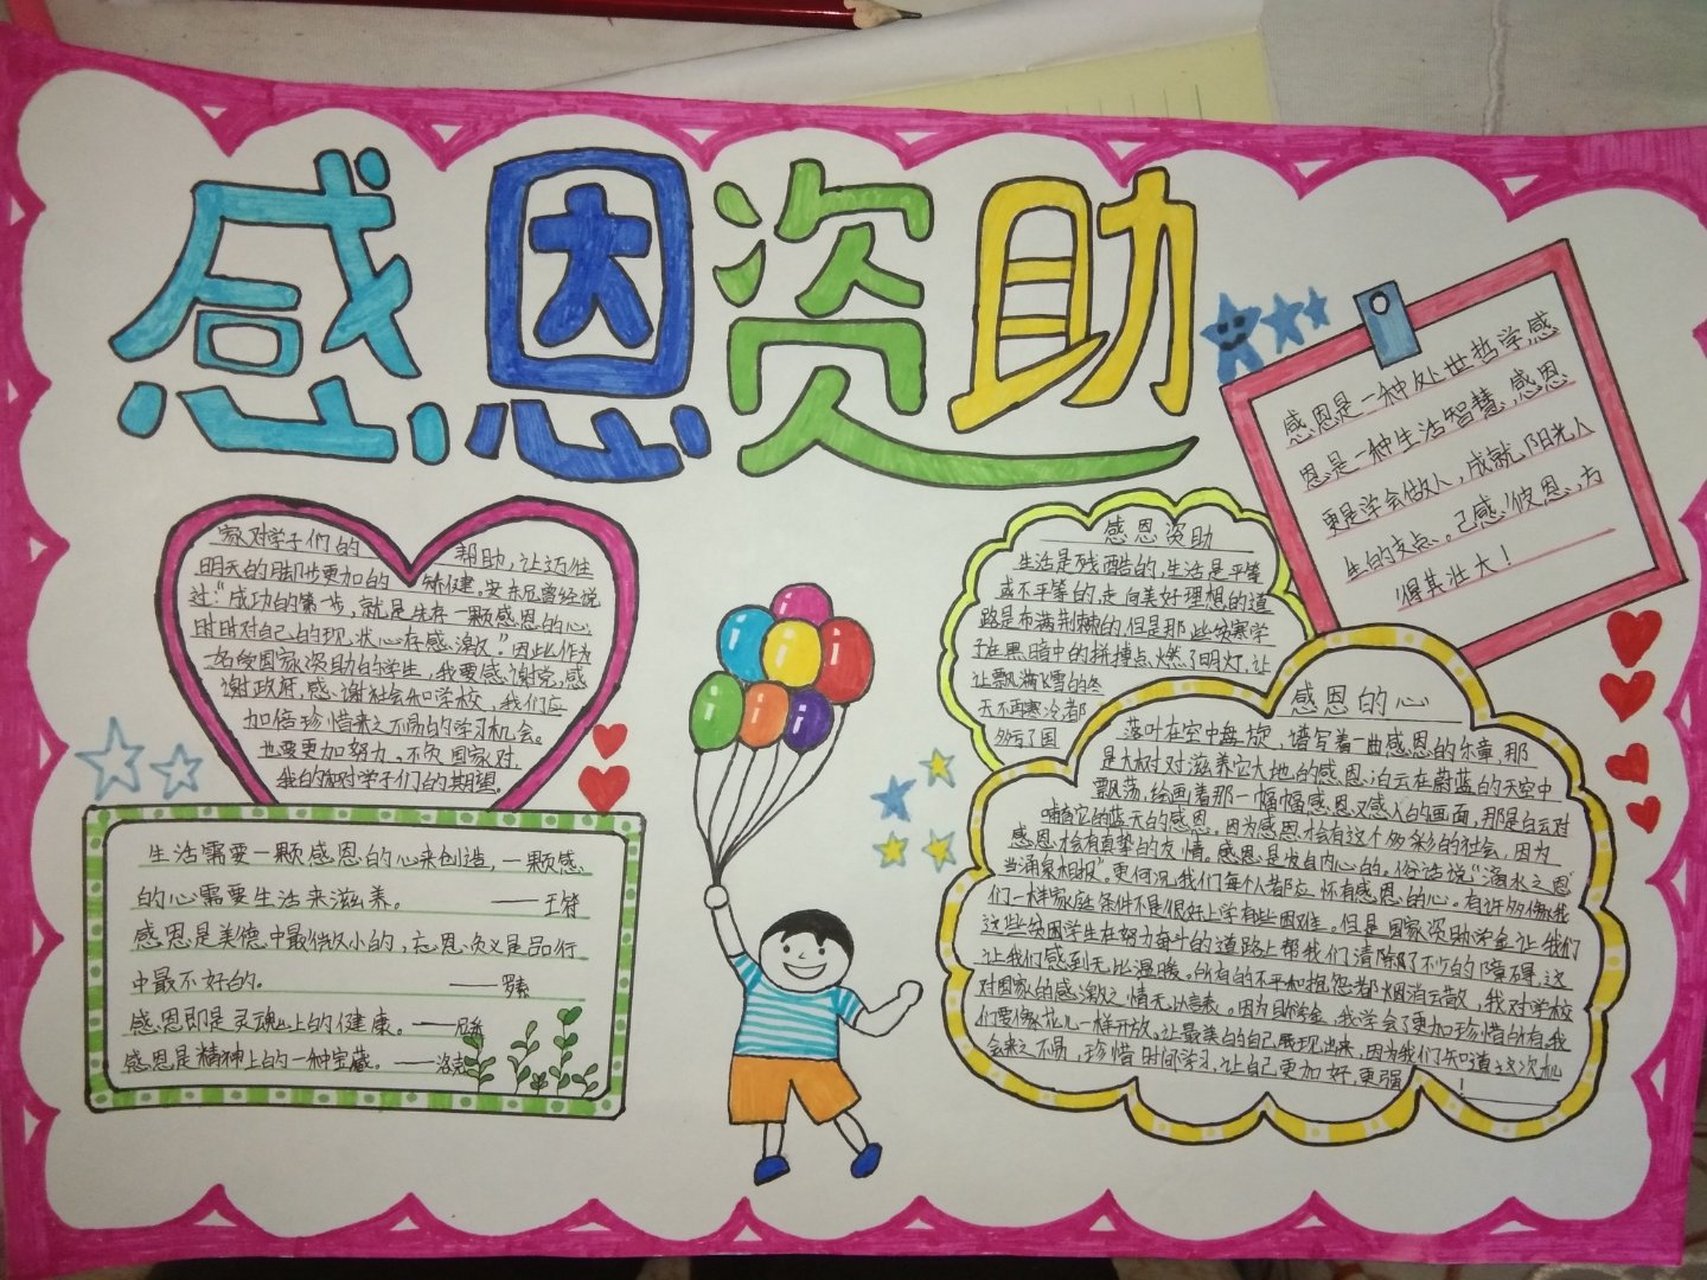 感恩资助
家对学子们的帮助,让迈往
明天的脚步更加的矫健。安东尼曾经说
过:"成功的第一步,就是先存一颗感恩的心,
时时对自己的现状心存感激"。因此作为
一名受国家资助的学生,我要感谢党,感
谢政府,感谢社会和学校,我们应
加倍珍惜来之不易的学习机会。
也要更加努力。不负国家对
我的家对学子们的期望。
生活需要一颗感恩的心来创造,一颗感
的心需要生活来滋养。 ——王符
感恩是美德中最微小的,忘恩负义是品行
中最不好的。 ——罗素
感恩即是灵魂上的健康。——尼采
感恩是精神上的一种宝藏。——洛克
感恩是一种处世哲学,感
恩是一种生活智慧,感恩
更是学会做人,成就阳光人
生的支点。己感彼恩,方
得其壮大!
感恩资助
生活是残酷的,生活是平等
或不平等的,走向美好理想的道
路是布满荆棘的,但是那些贫寒学
子在黑暗中的拼搏点燃了明灯,让
让飘满飞雪的冬
天不再寒冷都
多亏了国
感恩的心
落叶在空中盘旋,谱写着一曲感恩的乐章,那
是大树对滋养它大地的感恩,白云在蔚蓝的天空中
飘荡,绘画着那一幅幅感恩又感人的画面,那是白云对
哺育它的蓝天的感恩。因为感恩才会有这个多彩的社会,因为
感恩才会有真挚的友情。感恩是发自内心的。俗话说"滴水之恩
当涌泉相报"。更何况我们每个人都应怀有感恩的心。有许多像我
们一样家庭条件不是很好上学有些困难。但是国家资助学金让我们
这些贫困学生在努力奋斗的道路上帮我们清除了不少的障碍,这
让我们感到无比温暖。所有的不平和抱怨都烟消云散,我对学校
对国家的感激之情无以言表。因为助学金,我学会了更加珍惜所有,我
们要像花儿一样开放,让最美的自己展现出来,因为我们知道这次机
会来之不易,珍惜时间学习,让自己更加好,更强!